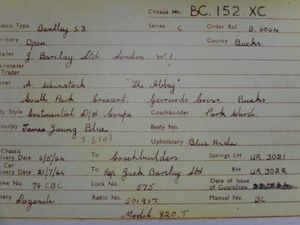 Chassis No. BC. 152 XC
Chassis Type Bentley S.3 Series C Order Ref. B.6064
Territory Open County Bucks.
Retailer J. Barclay Ltd London. W.1.
Retailer
Trader
A. Weinstock "The Abbey"
South Park Crescent. Gerrards Cross. Bucks.
Body Style Continental D/H Coupe Coachbuilder Park Ward.
Colour(s) James Young Blue
Upholstery Blue Hide
Chassis Delivery Date 6/5/64 To Coachbuilders Springs LH UR 3021
Car Delivery Date 21/7/64 To Jack Barclay Ltd RH UR 3022
Engine No. 76 CBC Lock No. 575 Date of Issue of Guarantee
Radio No. 501917 Manual No. BC
Model. 920.T